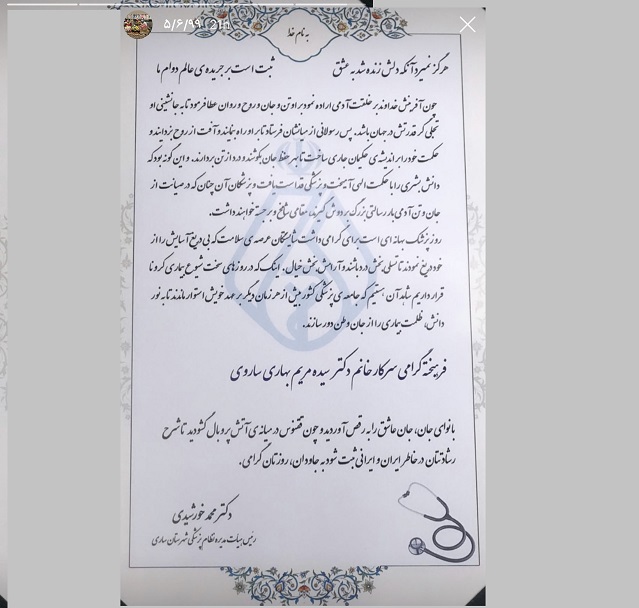 ۵/۶/۹۹
به نام خدا
هرگز نمیرد آنکه دلش زنده شد به عشق ثبت است بر جریده ی عالم دوام ما
چون آفرینش خداوند بر خلقت آدمی اراده نمود بر او تن و جان و روح و روان عطا فرمود تا به جانشینی او
تجلی گر قدرتش در جهان باشد. پس رسولانی از میانشان فرستاد تا بر او راه بنمایند و آفت از روح بزدایند و
حکمت خود را بر اندیشه ی حکیمان جاری ساخت تا بهر حفظ جان بکوشند و درد از تن بردارند. و این گونه بود که
دانش بشری را با حکمت الهی آمیخت و پزشکی قداست یافت و پزشکان آن چنان که در صیانت از
جان و تن آدمی بار رسالتی بزرگ بر دوش گیرند، مقامی شامخ و برجسته خواهند داشت.
روز پزشک بهانه ای است برای گرامی داشت شایستگان عرصه ی سلامت که بی دریغ آسایش را از
خود دریغ نمودند تا تسلی بخش درد باشند و آرامش بخش خیال. اینک که در روزهای سخت شیوع بیماری کرونا
قرار داریم شاهد آن هستیم که جامعه ی پزشکی کشور بیش از هر زمان دیگر بر عهد خویش استوار ماندند تا به نور
دانش، ظلمت بیماری را از جان وطن دور سازند.
فرهیخته گرامی سرکار خانم دکتر سیده مریم بهاری ساروی
بانوای جان، جان عاشق را به رقص آوردید و چون ققنوس در میانه ی آتش پر و بال گشودید تا شرح
رشادتتان در خاطر ایران و ایرانی ثبت شود به جاودان، روزتان گرامی.
دکتر محمد خورشیدی
رئیس هیات مدیره نظام پزشکی شهرستان ساری